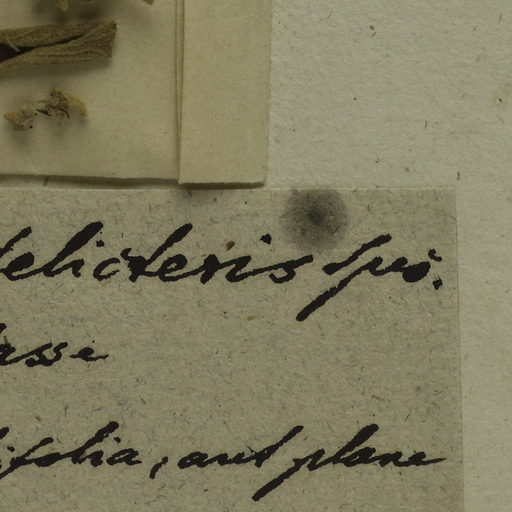 Helicteris spis.
asse
ifolia, aut plane